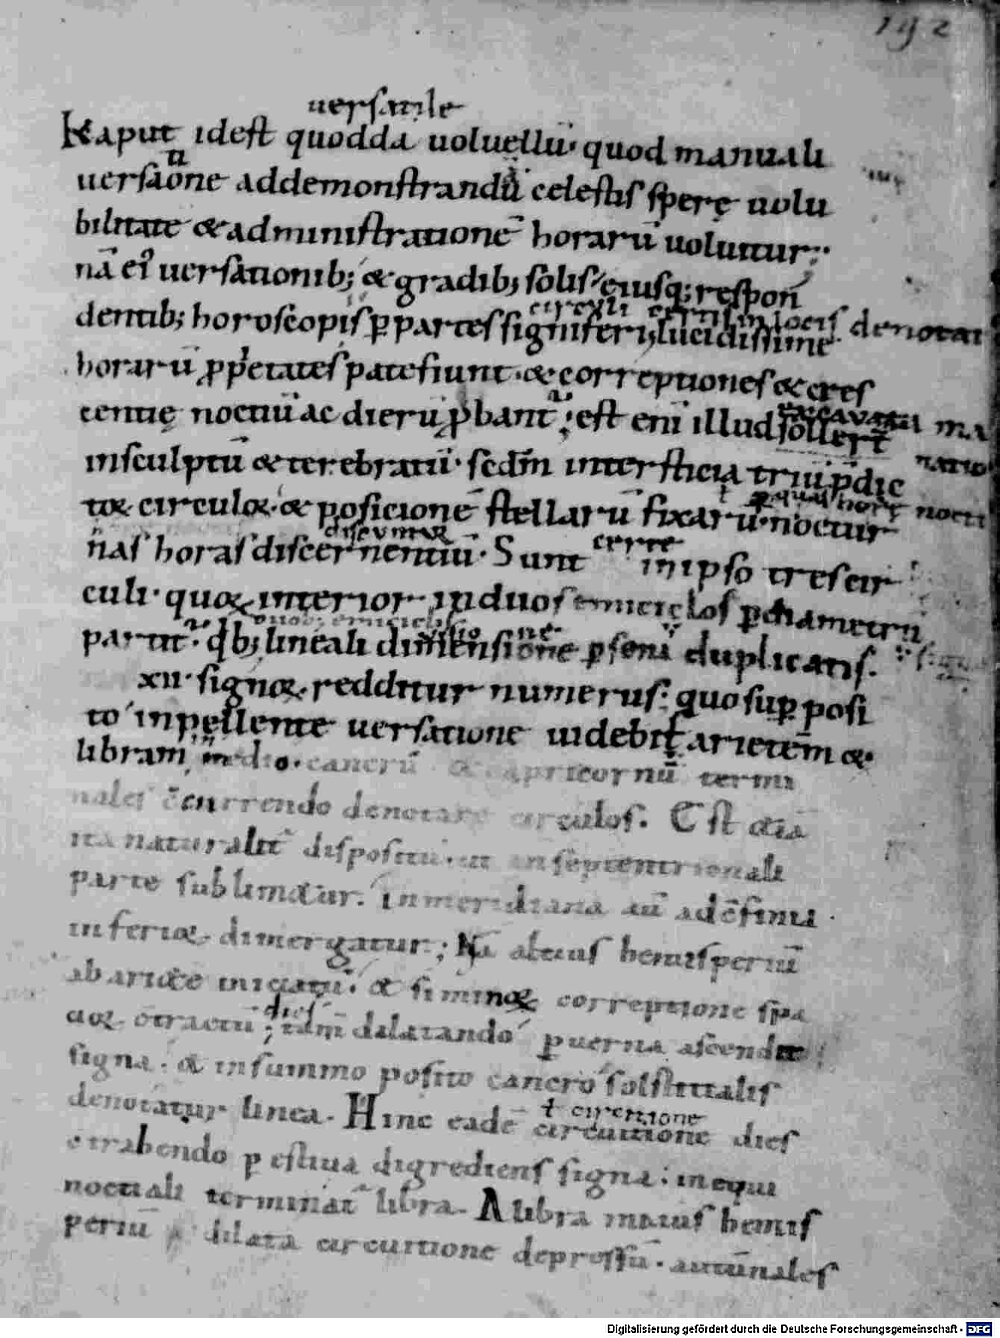 192
uersatile
Kaput idest quoddā uoluellū· quod manuali
uersaōne addemonstrandū celestis sperę uolu
bilitate & administrationē horarū uoluitur;
nā ei' uersationib; & gradib; solis· eiusq; respon
circuli certis in locis
dentib; horoscopis p partes signiferi lucidissime denotat
horarū ppetates patefiunt· & correptiones & cres
centię noctiū ac dierū pbant; est eni illud sollert
insculptū & terebratū· scdm intersticia triū pdic
toꝝ circuloꝝ· & posicionē stellarū fixarū· noctur
nas horas discernentiū· Sunt in ipso tres cir
culi· quoꝝ interior in duos emiciclos p diametrū
partit· qb; lineali dimensione p seni duplicatis·
xii· signoꝝ· redditur numerus: quo sup posi
to inpellente uersatione uidebit arietem &
libram in medio· cancrū & capricornū termi
nales currendo denotare circulos. Est &iā
ita naturalit dispositū· ut in septentrionali
parte sublimetur· in meridiana aū ad cfinia
inferioꝝ· dimergatur; Nā altius hemisperiū
ab ariete iniciatū· & siminoꝝ correptione spa
dies
tām dilatando p uerna ascendit
signa· & insummo posito cancro solstitialis
denotatur linea· Hinc eadē circuitione dies
ł circitione
p estiua digrediens signa· in equi
noctiali terminat libra· A libra maius hemis
periū dilata circuitione depressū· autūnales
Digitalisierung gefördert durch die Deutsche Forschungsgemeinschaft - DFG